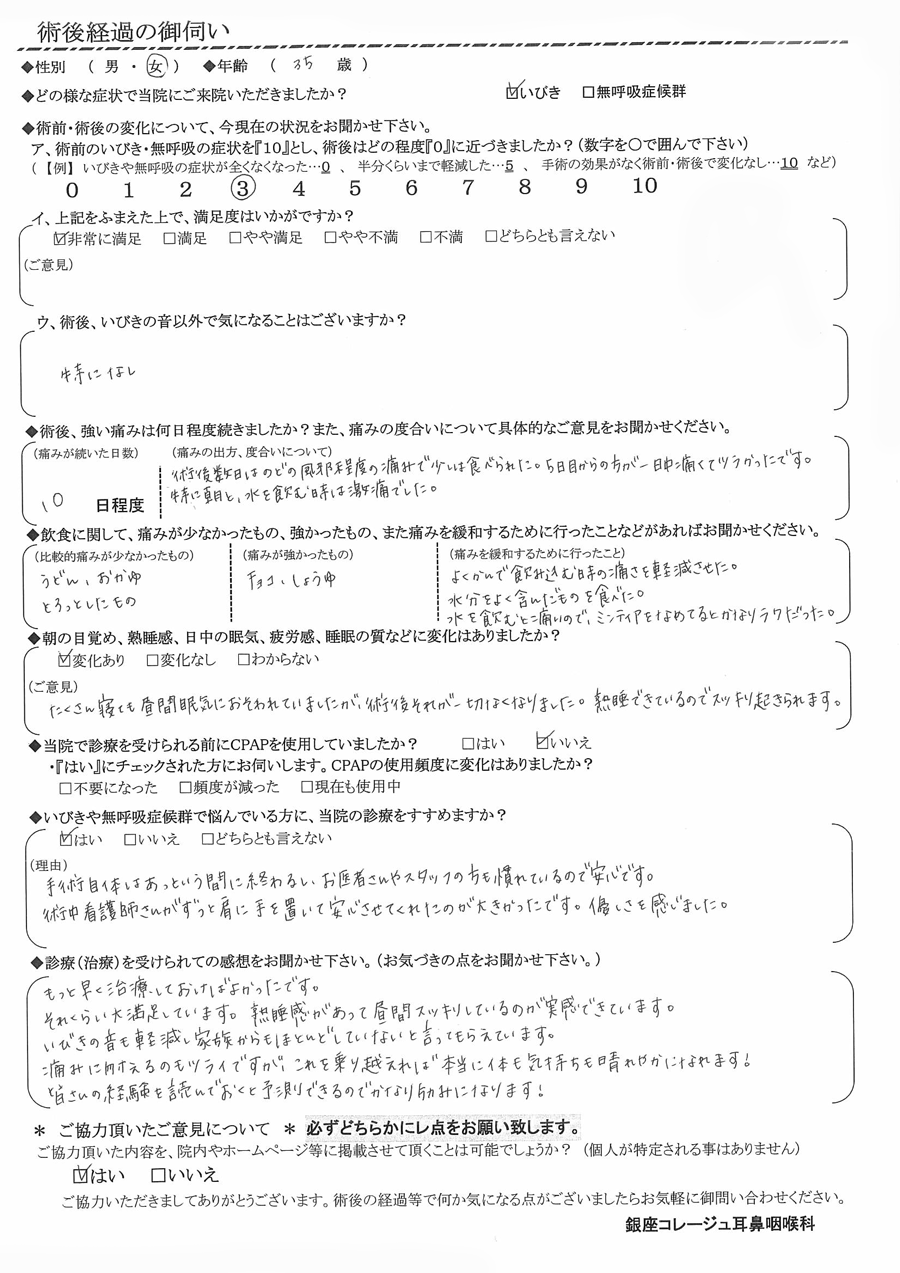 術後経過の御伺い
◆性別 ( 男 ・ 女 ) ◆年齢 ( 35 歳 )
◆どの様な症状で当院にご来院いただきましたか? ☑いびき □無呼吸症候群
◆術前・術後の変化について、今現在の状況をお聞かせ下さい。
ア、術前のいびき・無呼吸の症状を『10』とし、術後はどの程度『0』に近づきましたか?(数字を○で囲んで下さい)
(【例】いびきや無呼吸の症状が全くなくなった…0 、 半分くらいまで軽減した…5 、 手術の効果がなく術前・術後で変化なし…10 など)
0 1 2 ③ 4 5 6 7 8 9 10
イ、上記をふまえた上で、満足度はいかがですか?
☑非常に満足 □満足 □やや満足 □やや不満 □不満 □どちらとも言えない
(ご意見)
ウ、術後、いびきの音以外で気になることはございますか?
特になし
◆術後、強い痛みは何日程度続きましたか?また、痛みの度合いについて具体的なご意見をお聞かせください。
(痛みが続いた日数) (痛みの出方、度合いについて)
術後数日はのどの風邪程度の痛みで少しは食べられた。5日目からの方が一日中痛くてツラかったです。
10 日程度 特に朝と、水を飲む時は激痛でした。
◆飲食に関して、痛みが少なかったもの、強かったもの、また痛みを緩和するために行ったことなどがあればお聞かせください。
(比較的痛みが少なかったもの) (痛みが強かったもの) (痛みを緩和するために行ったこと)
うどん、おかゆ チョコ、しょうゆ よくかんで飲み込む時の痛さを軽減させた。
とろっとしたもの 水分をよく含んだものを食べた。
水を飲むと痛いので、ミンティアをなめてるとかなりラクだった。
◆朝の目覚め、熟睡感、日中の眠気、疲労感、睡眠の質などに変化はありましたか?
☑変化あり □変化なし □わからない
(ご意見)
たくさん寝ても昼間眠気におそわれていましたが、術後それが一切なくなりました。熟睡できているのでスッキリ起きられます。
◆当院で診療を受けられる前にCPAPを使用していましたか? □はい ☑いいえ
・『はい』にチェックされた方にお伺いします。CPAPの使用頻度に変化はありましたか?
□不要になった □頻度が減った □現在も使用中
◆いびきや無呼吸症候群で悩んでいる方に、当院の診療をすすめますか?
☑はい □いいえ □どちらとも言えない
(理由)
手術自体はあっという間に終わるし、お医者さんやスタッフの方も慣れているので安心です。
術中看護師さんがずっと肩に手を置いて安心させてくれたのが大きかったです。優しさを感じました。
◆診療(治療)を受けられての感想をお聞かせ下さい。(お気づきの点をお聞かせ下さい。)
もっと早く治療しておけばよかったです。
それくらい大満足しています。熟睡感があって昼間スッキリしているのが実感できています。
いびきの音も軽減し家族からもほとんどしていないと言ってもらえています。
痛みに耐えるのもツライですが、これを乗り越えれば本当に体も気持ちも晴れやかになれます!
皆さんの経験を読んでおくと予測できるのでかなり励みになります!
* ご協力頂いたご意見について * 必ずどちらかにレ点をお願い致します。
ご協力頂いた内容を、院内やホームページ等に掲載させて頂くことは可能でしょうか? (個人が特定される事はありません)
☑はい □いいえ
ご協力いただきましてありがとうございます。術後の経過等で何か気になる点がございましたらお気軽に御問い合わせください。
銀座コレージュ耳鼻咽喉科